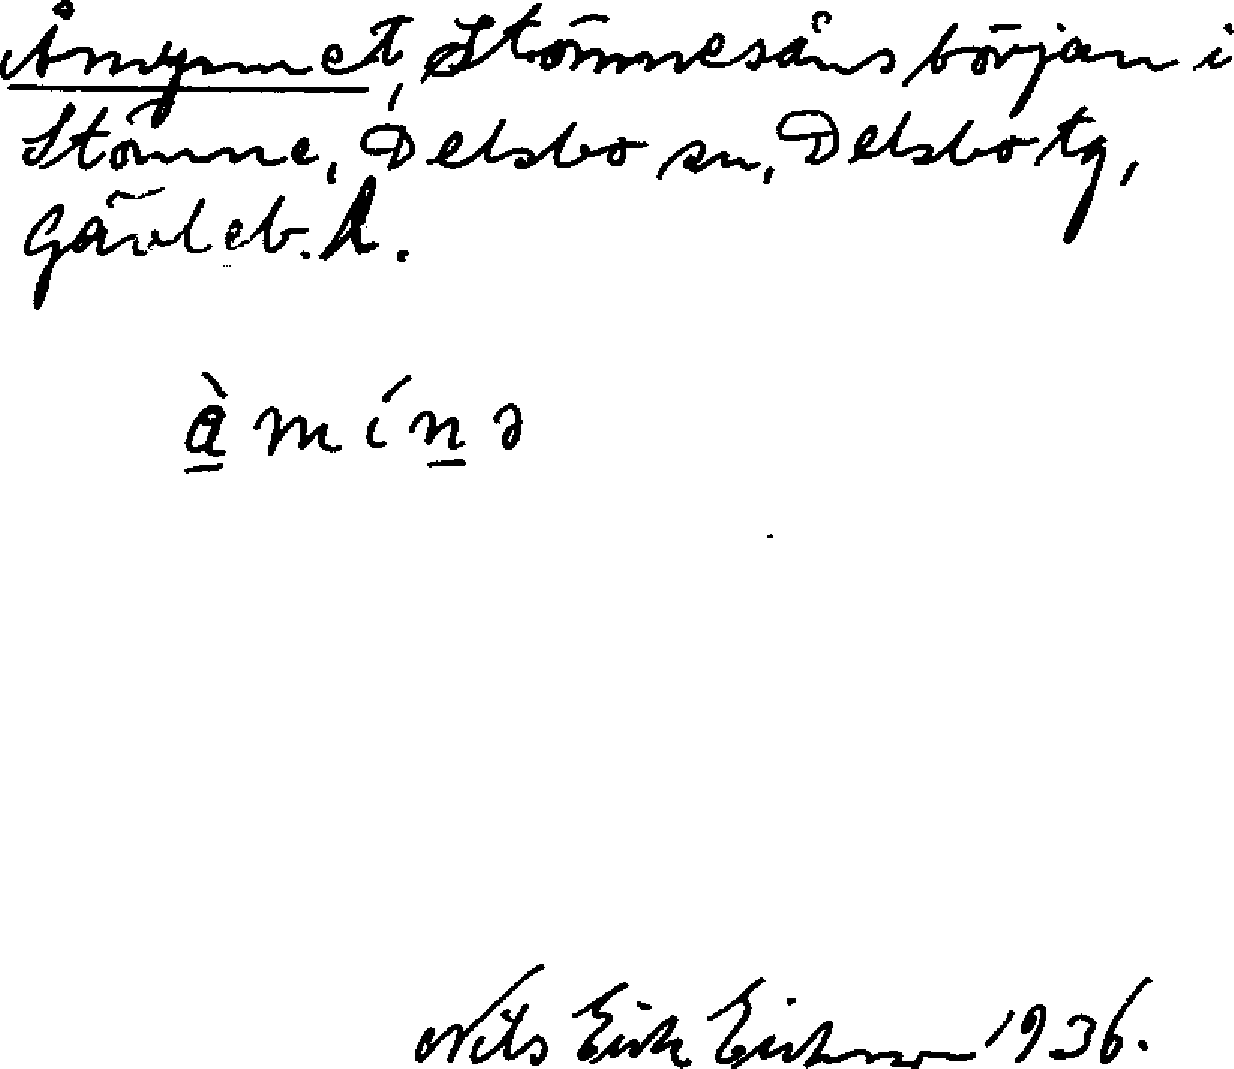 Åmynnet, Stömnesåns början i
Stömne, Delsbo sn, Delsbo tg,
Gävleb. l.
àmínə
Nils Erik Erikson 1936.